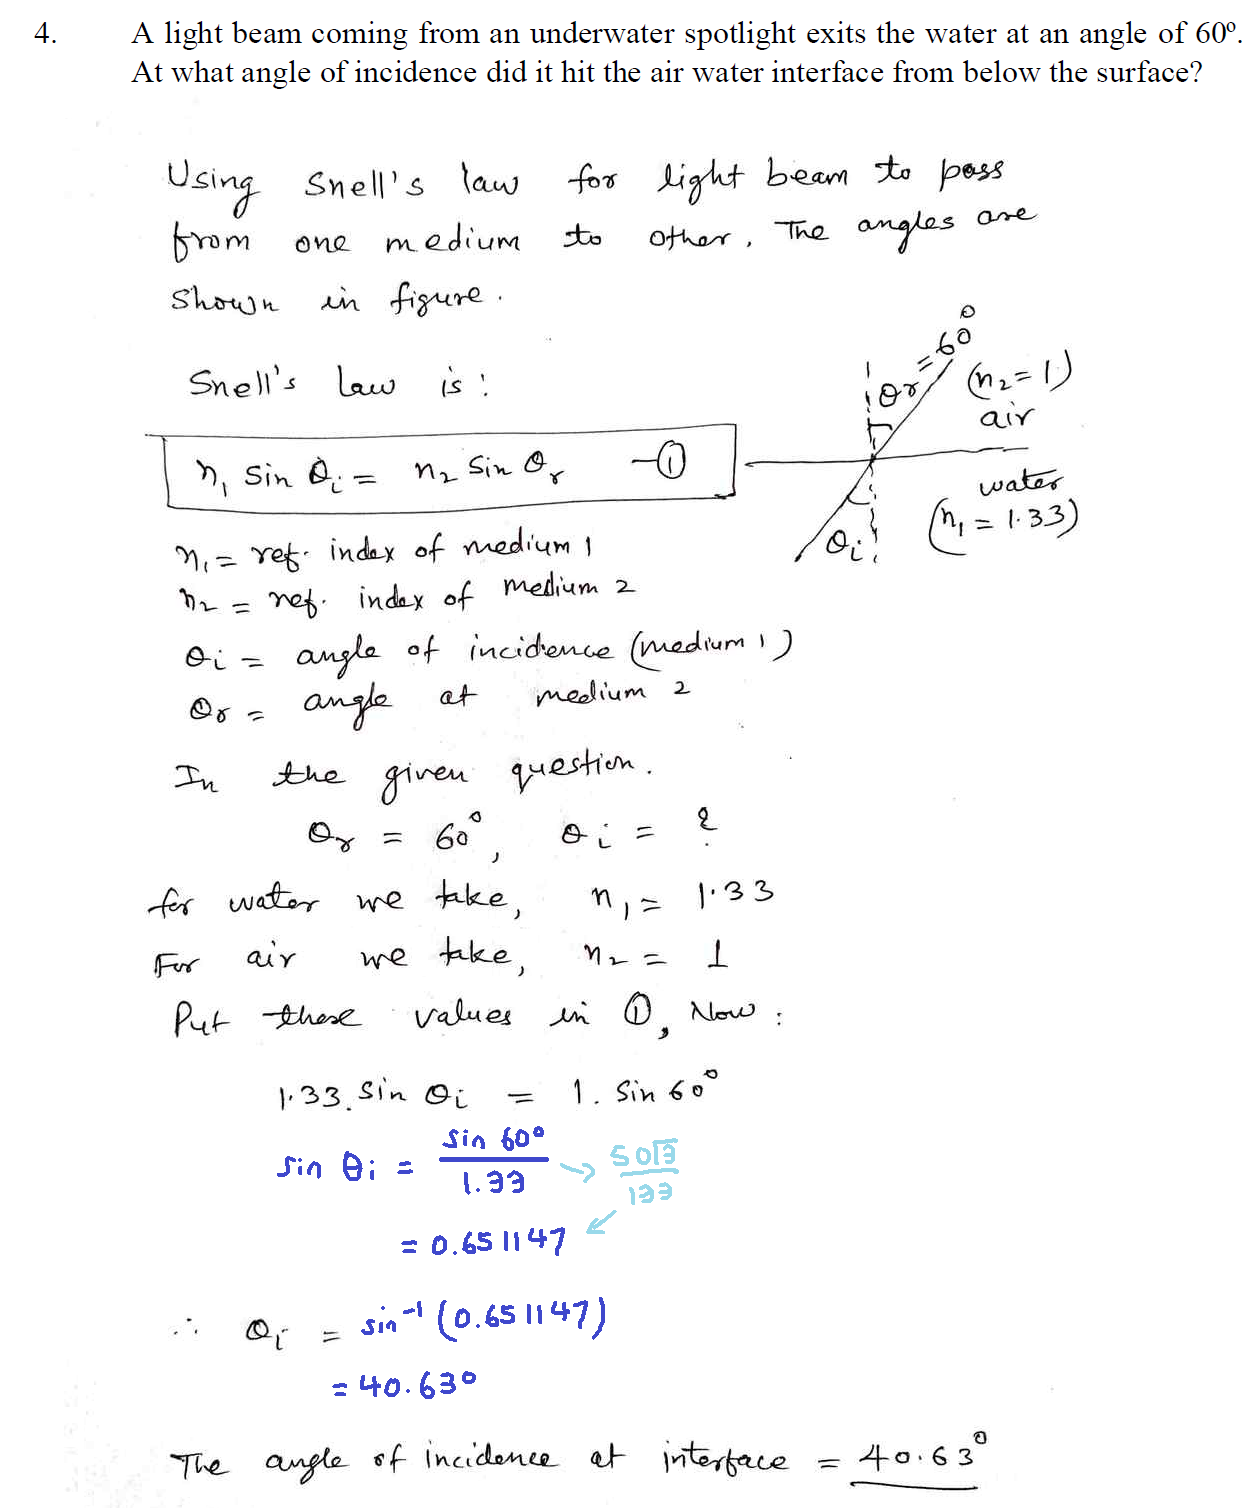 4. A light beam coming from an underwater spotlight exits the water at an angle of 60º.
At what angle of incidence did it hit the air water interface from below the surface?
Using Snell's law for light beam to pass
from one medium to other, The angles are
shown in figure.
Snell's law is :
n₁ sin θi = n₂ sin θr —①
θr = 60°
(n₂ = 1)
air
water
(n₁ = 1.33)
θi
n₁ = ref. index of medium 1
n₂ = ref. index of medium 2
θi = angle of incidence (medium 1)
θr = angle at medium 2
In the given question.
θr = 60°, θi = ?
for water we take, n₁ = 1.33
For air we take, n₂ = 1
Put these values in ①, Now :
1.33. sin θi = 1. sin 60°
sin θi = sin 60° / 1.33 → 50√3 / 133
= 0.651147
∴ θi = sin⁻¹ (0.651147)
= 40.63°
The angle of incidence at interface = 40.63°